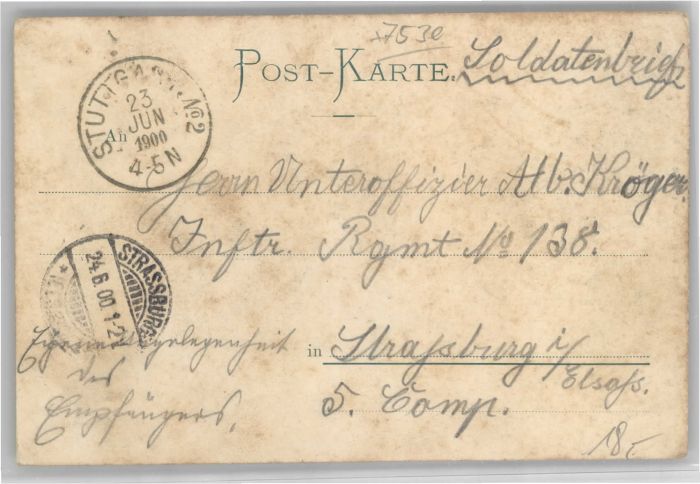 +7530
POST-KARTE.
Soldatenbrief
STUTTGART No 2
23
JUN
1900
4-5N
An
Herrn Unteroffizier Alb. Kröger.
Inftr. Rgmt No 138.
STRASSBURG
24.6.00.1-2
Eigene Angelegenheit
des
Empfängers.
in Straßburg i/
Elsaß.
5. Comp.
18,-